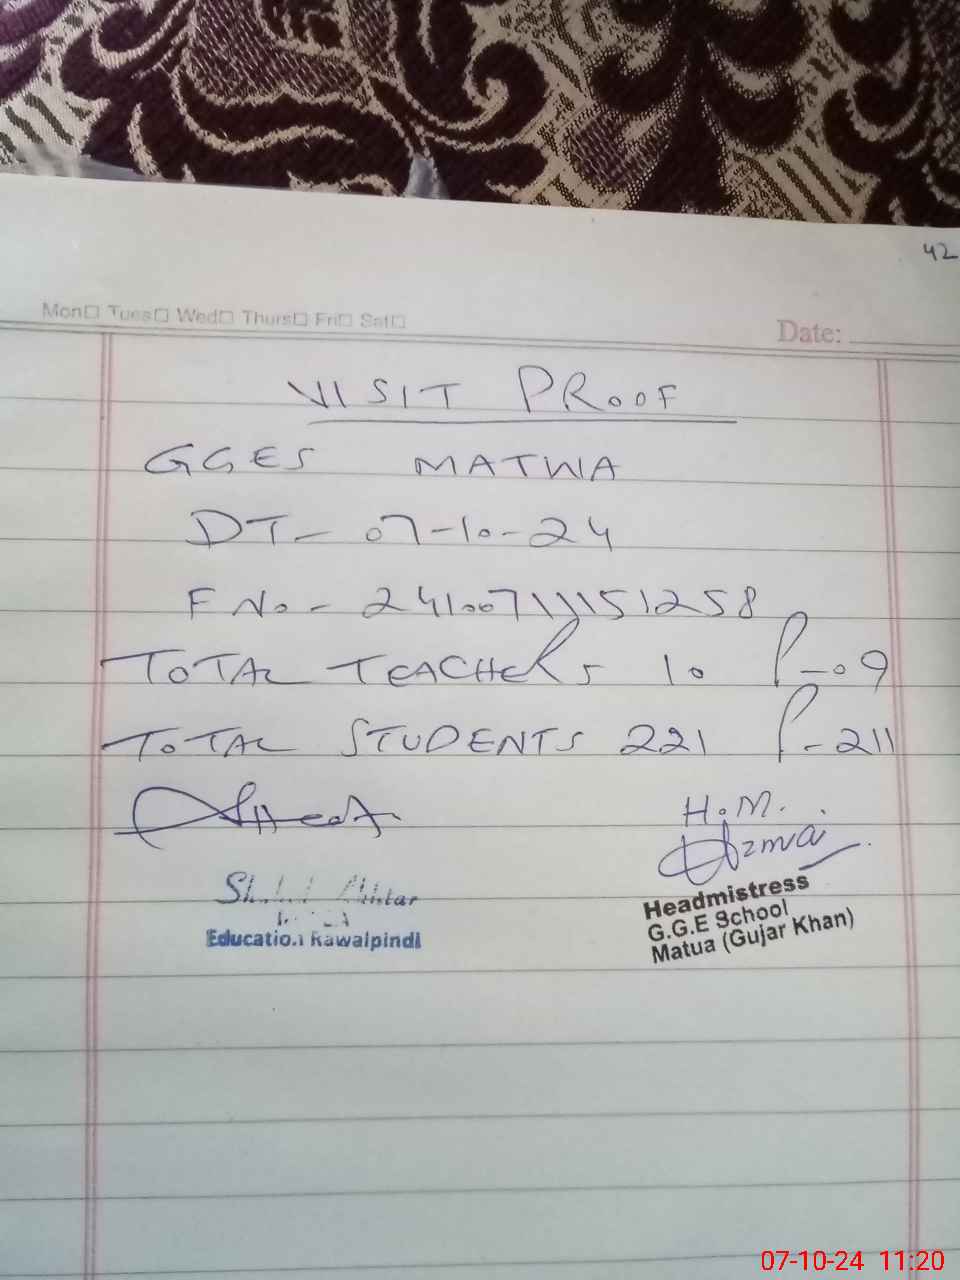 42
Mon□ Tues□ Wed□ Thurs□ Fri□ Sat□
Date:
VISIT PROOF
GGES MATWA
DT- 07-10-24
F No - 
TOTAL TEACHERS 10 P-09
TOTAL STUDENTS 221 P-211
H.M.
Uzma
Akhtar
Education Rawalpindi
Headmistress
G.G.E School
Matua (Gujar Khan)
07-10-24 11:20